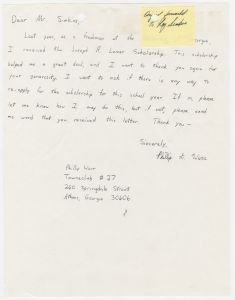 Dear Mr. Simkins,
Last year, as a freshman at the
I received the Joseph R. Lamar Scholarship. This scholarship
helped me a great deal, and I want to thank you again for
your generosity. I want to ask if there is any way to
re-apply for the scholarship for this school year. If so, please
let me know how I may do this, but if not, please send
me word that you received this letter. Thank you —
Sincerely,
Phillip A. Ware
Phillip Ware
Towneclub # 27
260 Springdale Street
Athens, Georgia 30606